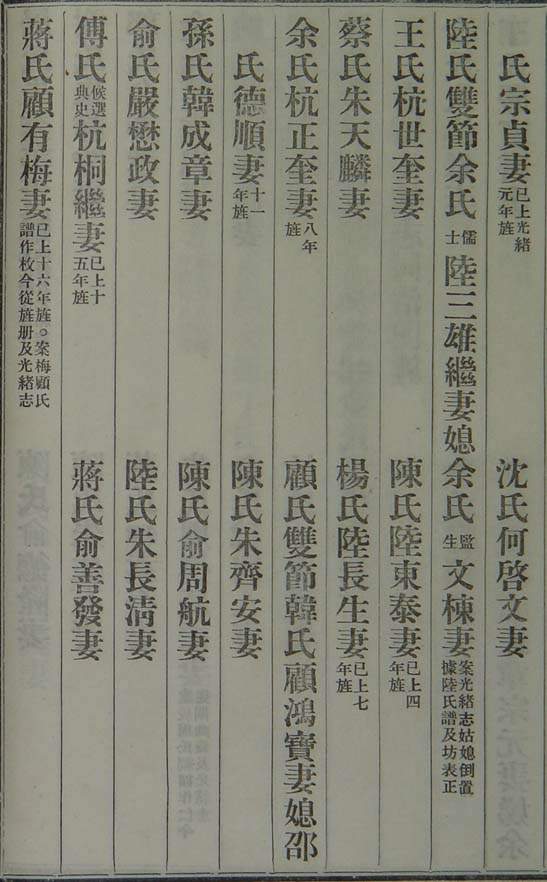 氏宗貞妻已上光緒元年旌　沈氏何啓文妻
陸氏雙節余氏儒士陸三雄繼妻媳余氏監生文棟妻案光緒志姑媳倒置據陸氏譜及坊表正
王氏杭世奎妻　陳氏陸東泰妻已上四年旌
蔡氏朱天麟妻　楊氏陸長生妻已上七年旌
余氏杭正奎妻八年旌　顧氏雙節韓氏顧鴻寶妻媳邵
氏德順妻十一年旌　陳氏朱齊安妻
孫氏韓成章妻　陳氏俞周航妻
俞氏嚴懋政妻　陸氏朱長淸妻
傅氏候選典史杭桐繼妻已上十五年旌　蔣氏俞善發妻
蔣氏顧有梅妻已上十六年旌○案梅顧氏譜作枚今從旌册及光緒志